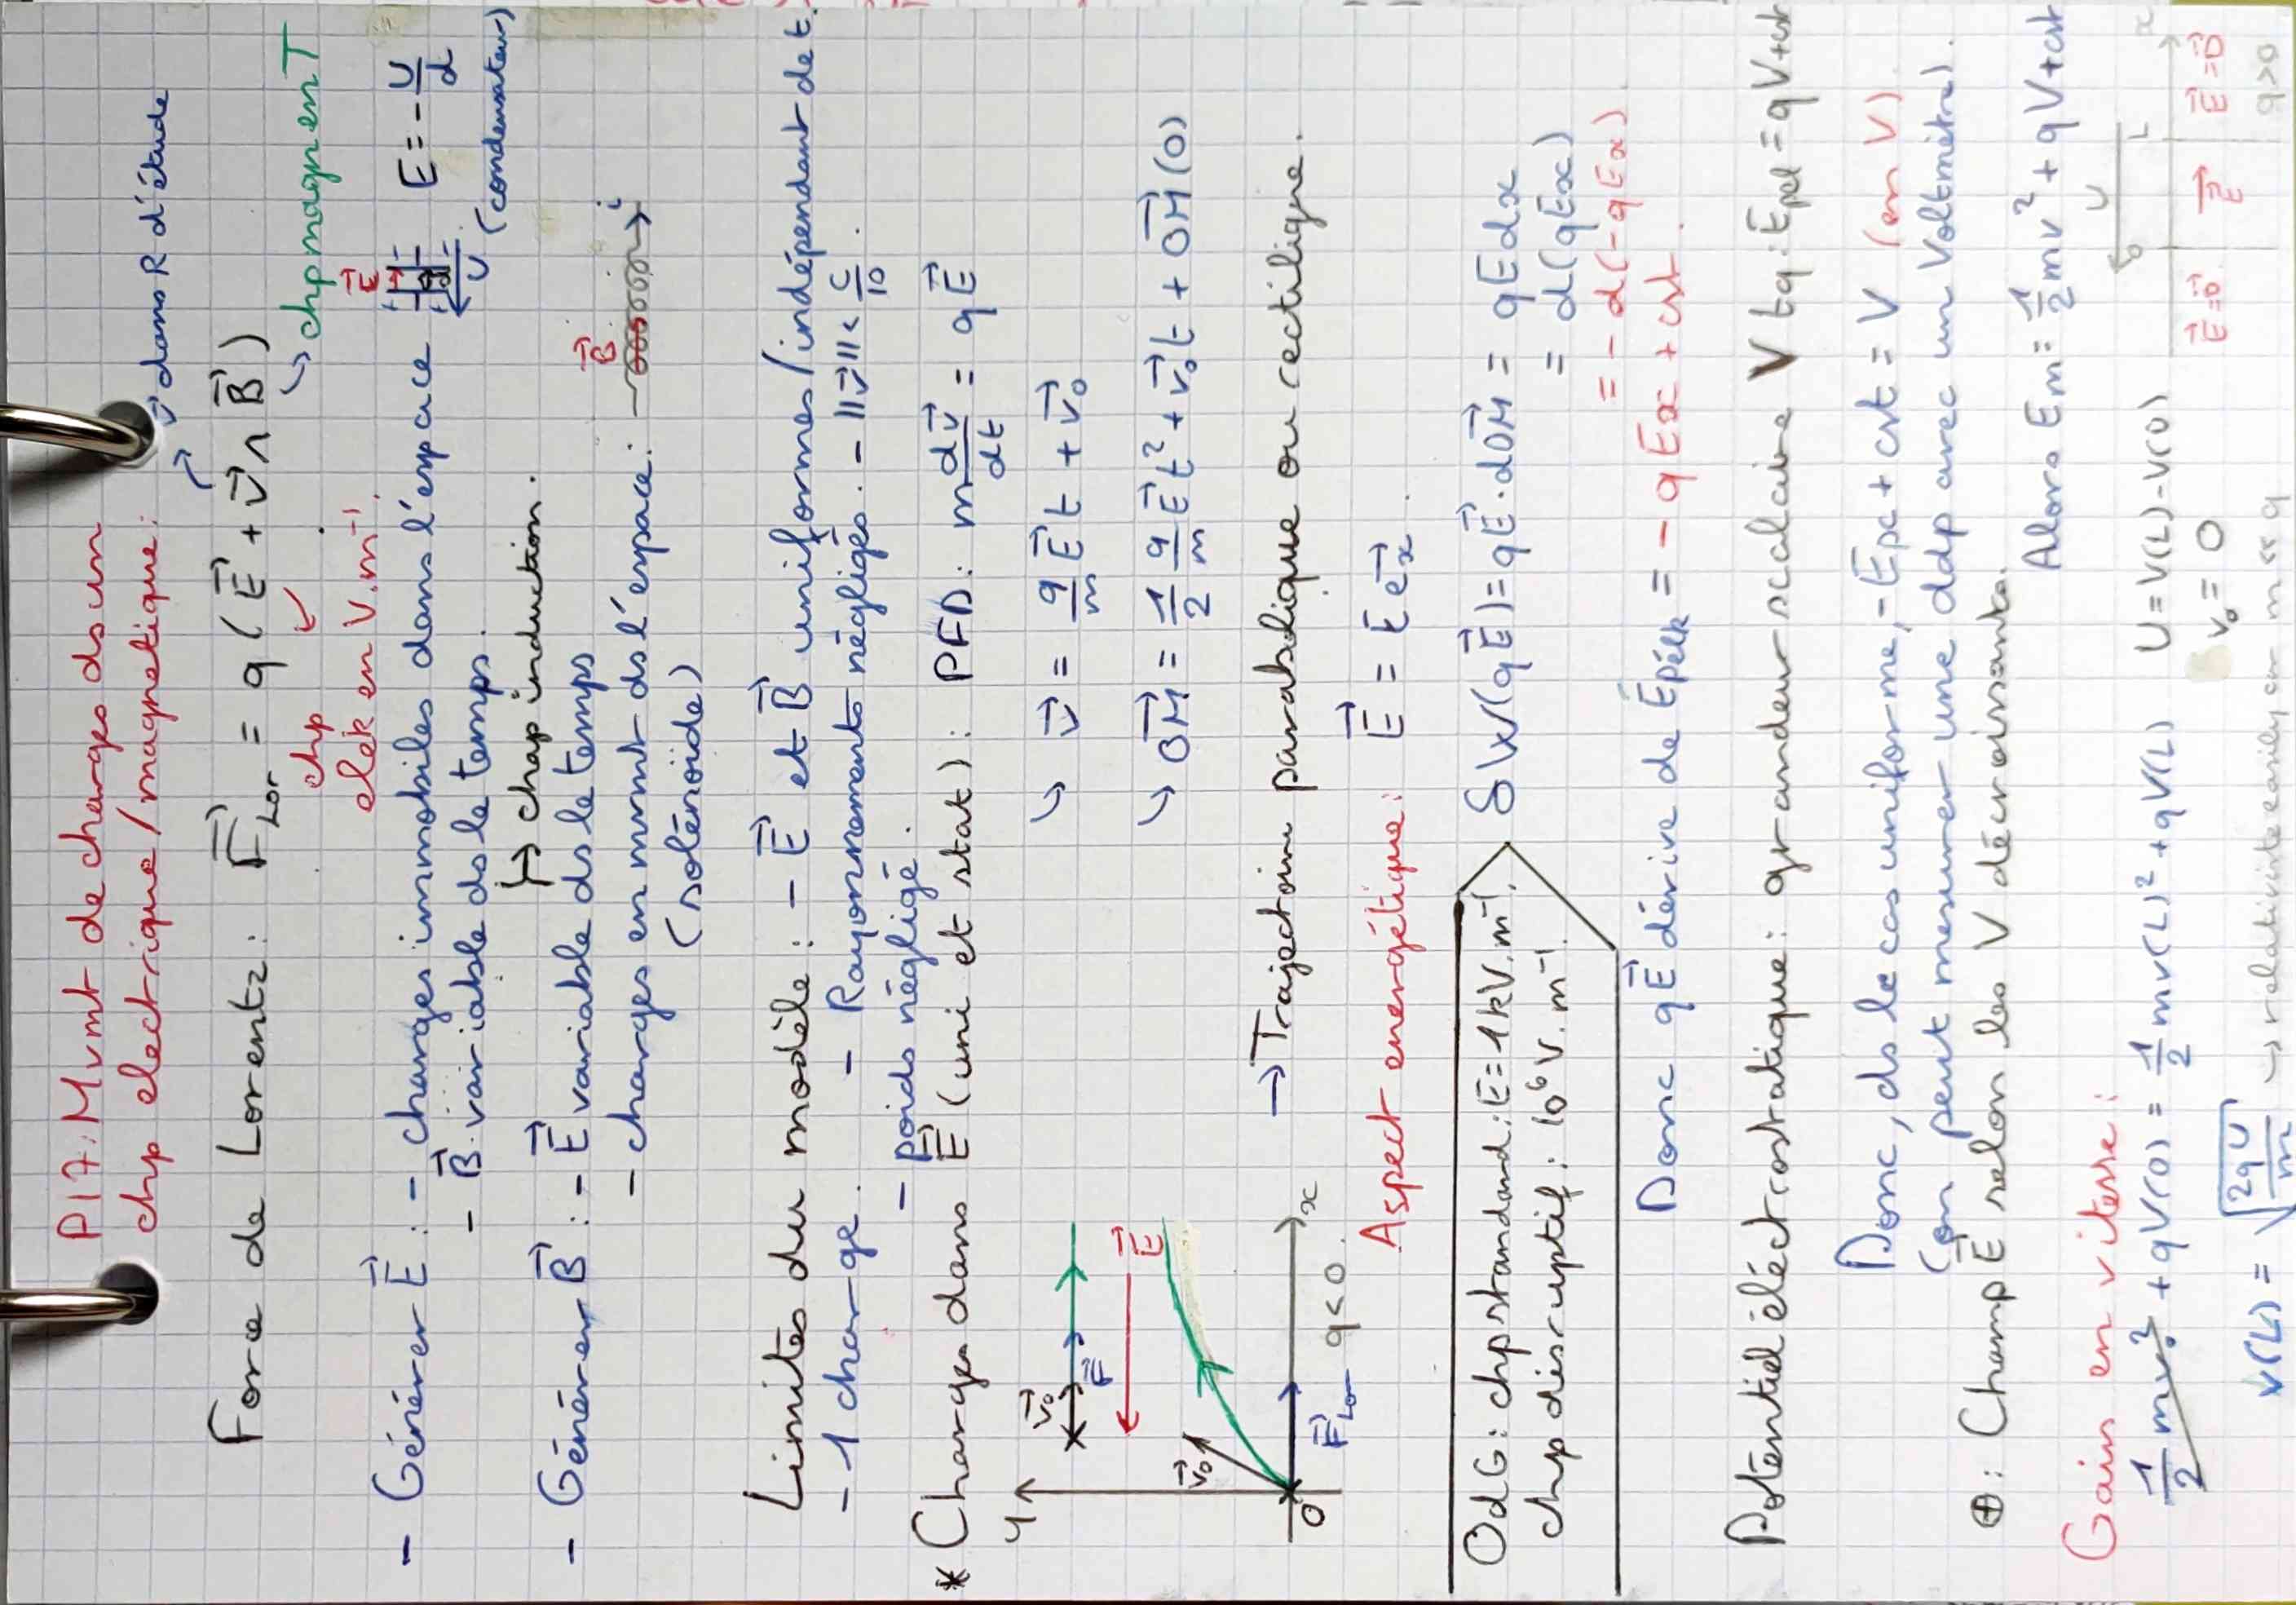 P17: Mvmt de charges ds un
chp electrique/magnetique:
Force de Lorentz: F⃗Lor = q(E⃗ + v⃗ ∧ B⃗)
v⃗ dans R d'étude
chp
elek en V.m⁻¹.
chp magn en T
- Générer E⃗ : - charges immobiles dans l'espace
E⃗
U
E = - U/d
(condensateur)
- B⃗ variable ds le temps.
↳ chap induction.
- Générer B⃗ : - E⃗ variable ds le temps
- charges en mvmt ds l'espace:
B⃗
i
(solénoide)
Limites du modèle : - E⃗ et B⃗ uniformes/indépendant de t.
- 1 charge. - Rayonnements négligés. - ||v⃗|| < c/10.
- poids négligé.
* Charge dans E⃗ (uni et stat) : PFD: m dv⃗/dt = qE⃗
y
v⃗₀
F⃗
E⃗
v⃗₀
O
F⃗Lor
q<0.
x
↳ v⃗ = q/m E⃗t + v⃗₀
↳ OM⃗ = 1/2 q/m E⃗t² + v⃗₀t + OM⃗(0)
→ Trajectoire parabolique ou rectiligne.
Aspect energétique: E⃗ = E e⃗x.
OdG: chp standard: E=1kV.m⁻¹.
chp disruptif: 10⁶ V.m⁻¹.
δW(qE⃗) = qE⃗.dOM⃗ = qEdx
= d(qEx)
= - d(-qEx)
Donc qE⃗ dérive de Epélk = - qEx + cst.
Potentiel éléctrostatique: grandeur scalaire V tq: Epel = qV+cst
Donc, ds le cas uniforme, - Ex + cst = V (en V)
(on peut mesurer une ddp avec un Voltmètre).
⊕: Champ E⃗ selon les V décroissants.
Alors Em = 1/2 mv² + qV + cst
Gain en vitesse:
1/2 mv₀² + qV(0) = 1/2 mv(L)² + qV(L)
U = V(L) - V(0)
v₀ = 0
U
0
L
x
E⃗=0⃗
E⃗
E⃗=0⃗
q>0
v(L) = √(2qU/m)
→ relativite easily car m << q